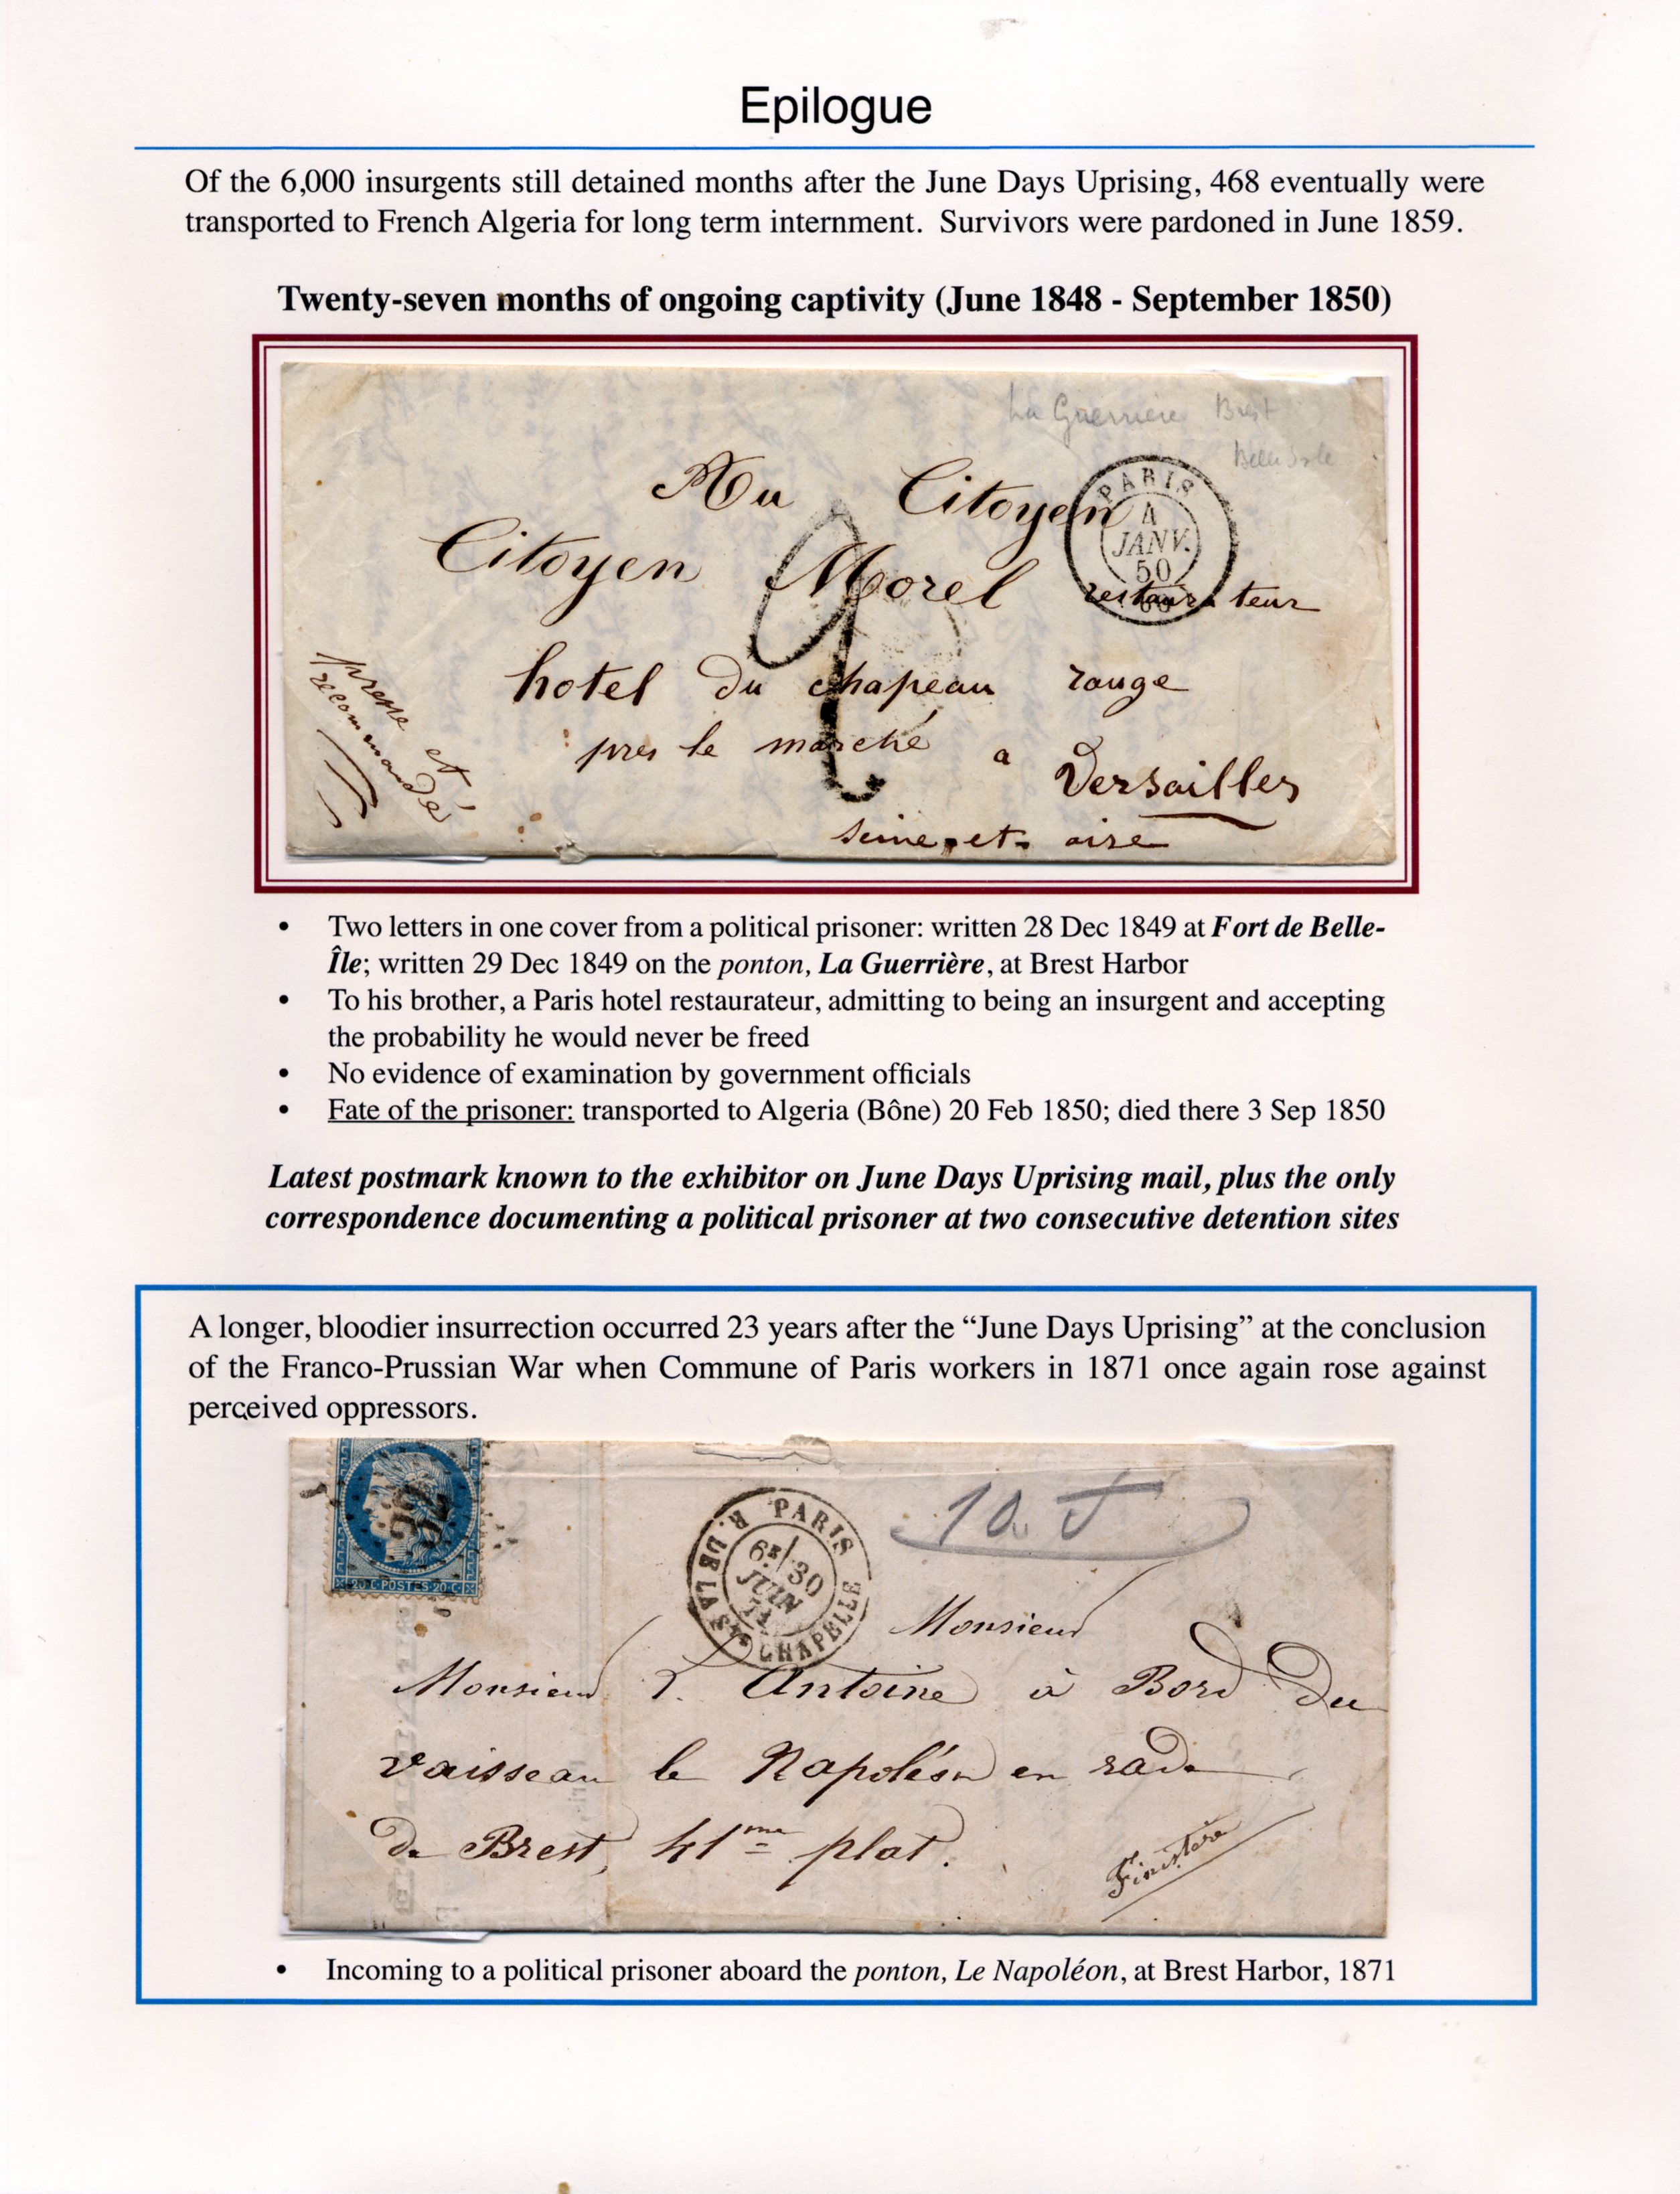 Epilogue
Of the 6,000 insurgents still detained months after the June Days Uprising, 468 eventually were
transported to French Algeria for long term internment. Survivors were pardoned in June 1859.
Twenty-seven months of ongoing captivity (June 1848 - September 1850)
La Guerrière Brest
Belle Isle
Au Citoyen
PARIS
4
JANV.
50
Citoyen Morel restaurateur
hotel du chapeau rouge
pres le marché a Versailles
Seine et oise
presse et
recommandée
2
• Two letters in one cover from a political prisoner: written 28 Dec 1849 at Fort de Belle-
Île; written 29 Dec 1849 on the ponton, La Guerrière, at Brest Harbor
• To his brother, a Paris hotel restaurateur, admitting to being an insurgent and accepting
the probability he would never be freed
• No evidence of examination by government officials
• Fate of the prisoner: transported to Algeria (Bône) 20 Feb 1850; died there 3 Sep 1850
Latest postmark known to the exhibitor on June Days Uprising mail, plus the only
correspondence documenting a political prisoner at two consecutive detention sites
A longer, bloodier insurrection occurred 23 years after the “June Days Uprising” at the conclusion
of the Franco-Prussian War when Commune of Paris workers in 1871 once again rose against
perceived oppressors.
32
20 C POSTES 20 C
PARIS
R. DE LA STE CHAPELLE
6E/30
JUIN
71
Monsieur
Monsieur Antoine à Bord du
vaisseau le Napoléon en rade
de Brest, 41me plat.
Finistère
• Incoming to a political prisoner aboard the ponton, Le Napoléon, at Brest Harbor, 1871